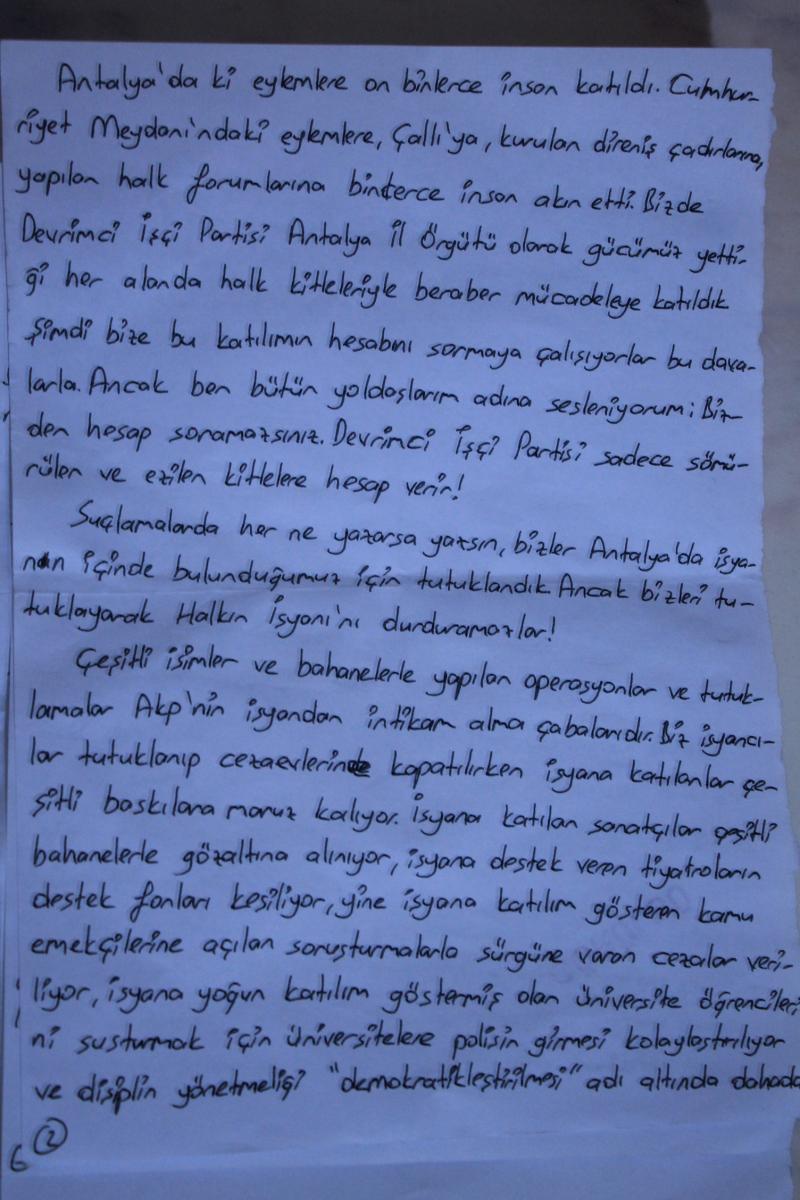 Antalya'da ki eylemlere on binlerce insan katıldı. Cumhu-
riyet Meydanı'ndaki eylemlere, Çallı'ya, kurulan direniş çadırlarına,
yapılan halk forumlarına binlerce insan akın etti. Bizde
Devrimci İşçi Partisi Antalya İl Örgütü olarak gücümüz yetti-
ği her alanda halk kitleleriyle beraber mücadeleye katıldık
Şimdi bize bu katılımın hesabını sormaya çalışıyorlar bu dava-
larla. Ancak ben bütün yoldaşlarım adına sesleniyorum; Biz-
den hesap soramazsınız. Devrimci İşçi Partisi sadece sömü-
rülen ve ezilen kitlelere hesap verir!
Suçlamalarda her ne yazarsa yazsın, bizler Antalya'da isya-
nın içinde bulunduğumuz için tutuklandık. Ancak bizleri tu-
tuklayarak Halkın İsyanı'nı durduramazlar!
Çeşitli isimler ve bahanelerle yapılan operasyonlar ve tutuk-
lamalar Akp'nin isyandan intikam alma çabalarıdır. Biz isyancı-
lar tutuklanıp cezaevlerinde kapatılırken isyana katılanlar çe-
şitli baskılara maruz kalıyor. İsyana katılan sanatçılar çeşitli
bahanelerle gözaltına alınıyor, isyana destek veren tiyatroların
destek fonları kesiliyor, yine isyana katılım gösteren kamu
emekçilerine açılan soruşturmalarla sürgüne varan cezalar veri-
liyor, isyana yoğun katılım göstermiş olan üniversite öğrencileri
ni susturmak için üniversitelere polisin girmesi kolaylaştırılıyor
ve disiplin yönetmeliği "demokratikleştirilmesi" adı altında dahada
2
6